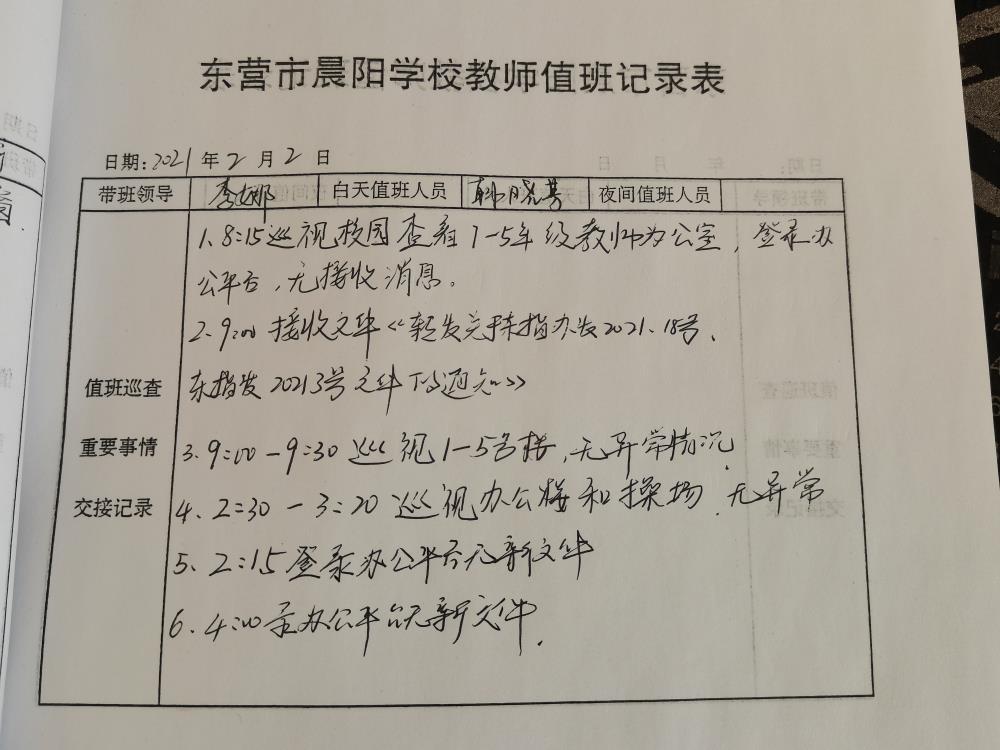 东营市晨阳学校教师值班记录表
日期:2021年2月2日
带班领导 李娜 白天值班人员 韩晓芳 夜间值班人员
1.8:15巡视校园查看1-5年级教师办公室,登录办
公平台,无接收消息。
2、9:00接收文件<<转发 指办发2021、18号、
值班巡查 东指发20213号文件的通知>>
重要事情 3.9:00-9:30巡视1-5号楼,无异常情况.
交接记录 4、2:30-3:20巡视办公楼和操场.无异常
5、2:15登录办公平台无新文件
6、4:00录办公平台无新文件.